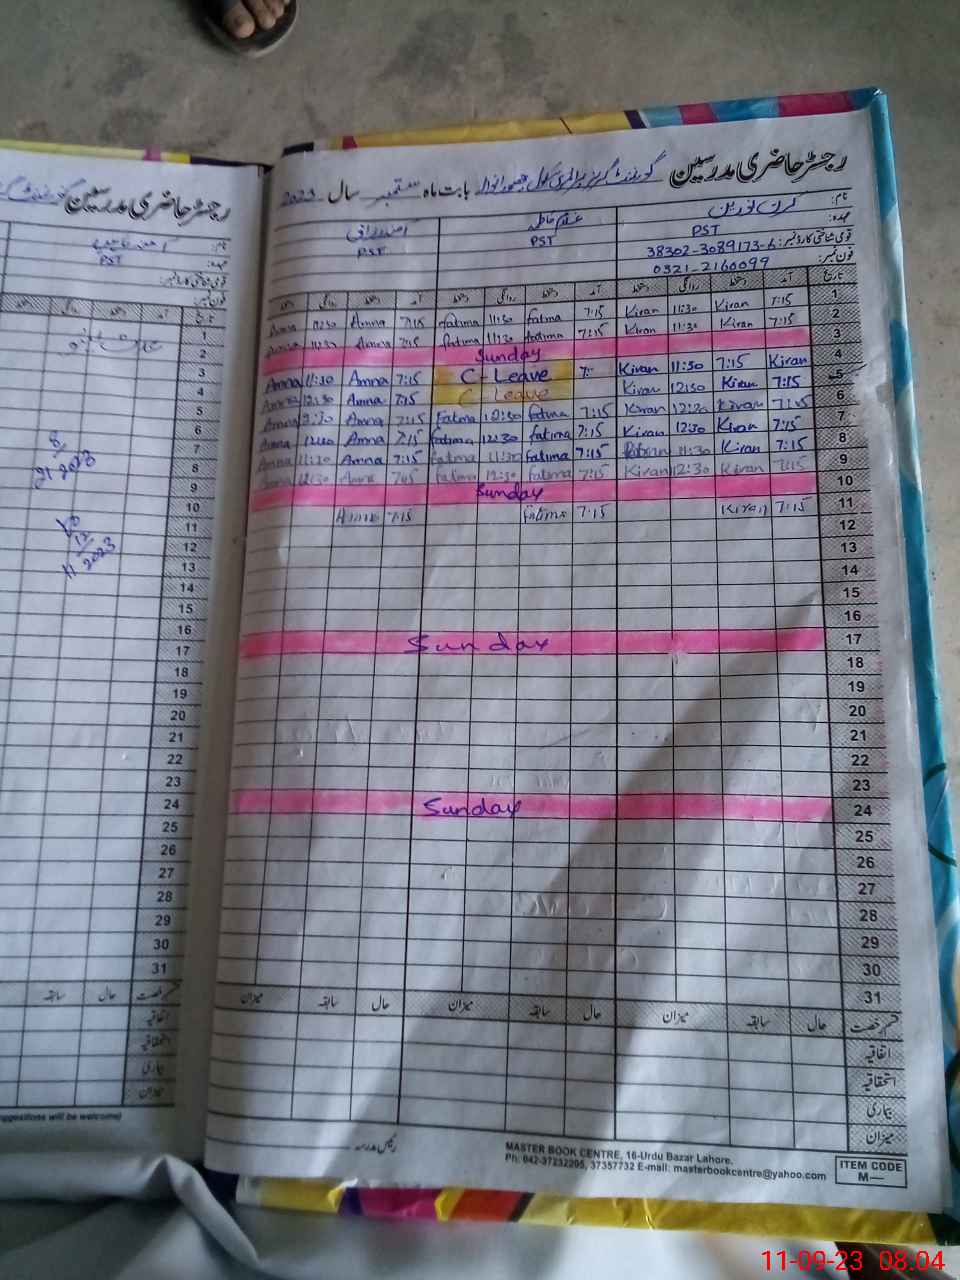 رجسٹر حاضری مدرسین گورنمنٹ گرلز پرائمری سکول بابت ماہ ستمبر سال 2023
نام: کرن نورین
عہدہ: PST PST PST
قومی شناختی کارڈ نمبر: 38302-3089173-6
فون نمبر: 0321-2160099
تاریخ آمد دستخط روانگی دستخط آمد دستخط روانگی دستخط آمد دستخط روانگی دستخط
1 7:15 Kiran 11:30 Kiran 7:15 fatima 11:30 fatima 7:15 Amna Amna
2 7:15 Kiran 11:30 Kiran 7:15 fatima 11:30 fatima 7:15 Amna 11:30 Amna
3 Sunday
4 Kiran 7:15 11:30 Kiran C-Leave 7:15 Amna 11:30 Amna
5 7:15 Kiran 12:30 Kiran C-Leave 7:15 Amna 12:30 Amna
6 Kiran Kiran 7:15 fatima 12:30 Fatima 7:15 Amna Amna
7 7:15 Kiran 12:30 Kiran 7:15 fatima 12:30 fatima 7:15 Amna Amna
8 7:15 Kiran 11:30 7:15 fatima 11:30 fatima 7:15 Amna 11:30 Amna
9 7:15 Kiran 12:30 Kiran 7:15 fatima 12:30 fatima Amna 12:30 Amna
10 Sunday
11 7:15 Kiran 7:15 fatima 7:15 Amna
12
13
14
15
16
17 Sunday
18
19
20
21
22
23
24 Sunday
25
26
27
28
29
30
31
قسم رخصت حال سابقہ میزان حال سابقہ میزان حال سابقہ میزان
اتفاقیہ
استحقاقیہ
بیماری
میزان
رئیس مدرسہ
MASTER BOOK CENTRE, 16-Urdu Bazar Lahore.
Ph: 042-37232205, 37357732 E-mail: masterbookcentre@yahoo.com
ITEM CODE
M—
رجسٹر حاضری مدرسین
نام:
عہدہ: PST
قومی شناختی کارڈ نمبر:
فون نمبر:
تاریخ آمد دستخط روانگی دستخط
1
2
3
4
5
6
7
8
9
10
11
12
13
14
15
16
17
18
19
20
21
22
23
24
25
26
27
28
29
30
31
2023
2023
قسم رخصت حال سابقہ
اتفاقیہ
استحقاقیہ
بیماری
میزان
suggestions will be welcome)
11-09-23 08.04